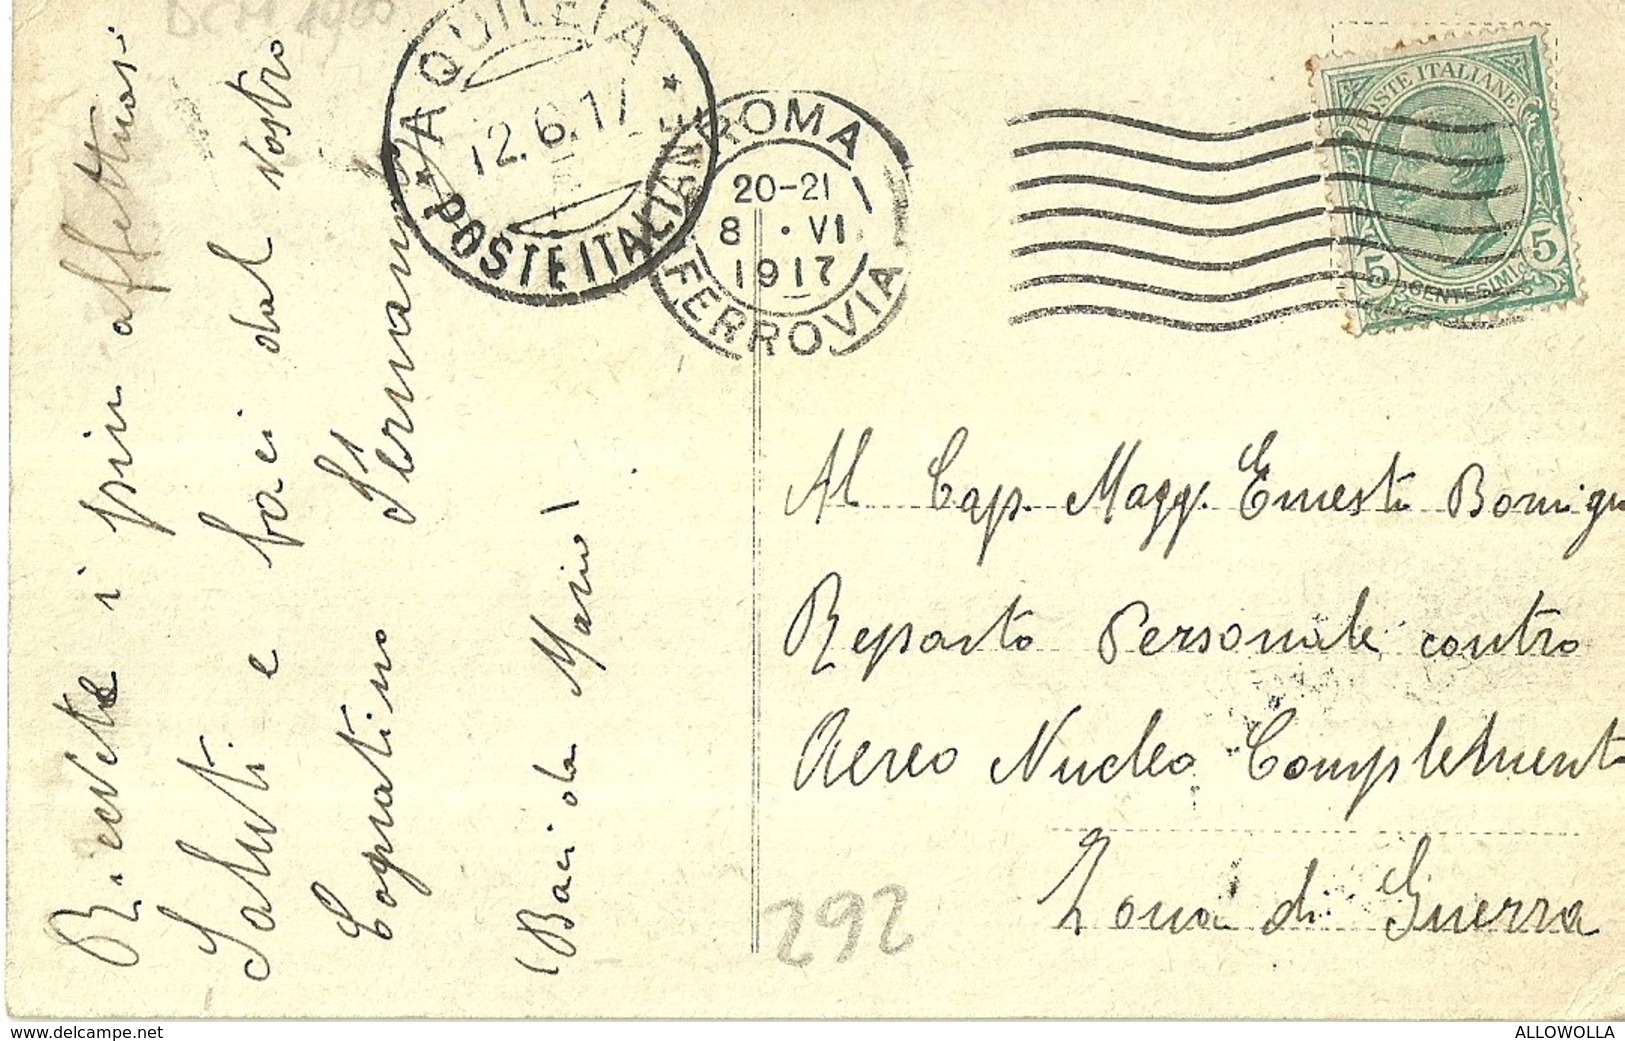 Ricevete i più affettuosi
Saluti e baci dal vostro
Cognatino Fernando
(Baci da Mario)
AQUILEIA
12.6.17
POSTE ITALIANE
ROMA
20-21
8 · VI
1917
FERROVIA
POSTE ITALIANE
5 CENTESIMI 5
Al Cap. Magg. Ernesto
Reparto Personale contro
Aereo Nucleo Complement
Zona di Guerra
292
www.delcampe.net
ALLOWOLLA